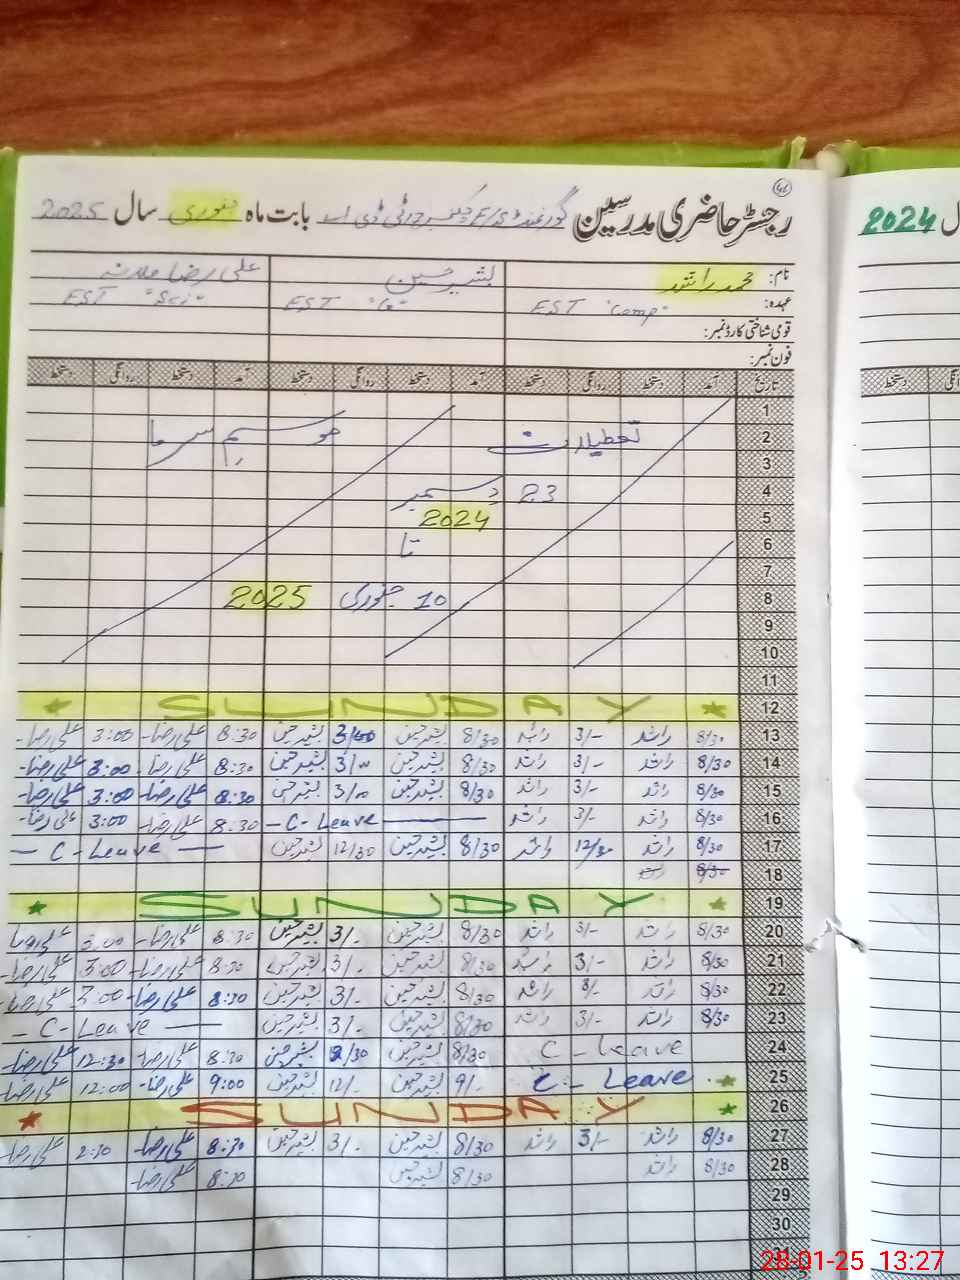 رجسٹر حاضری مدرسین گورنمنٹ بابت ماہ جنوری سال 2025
2024
نام: محمد راشد بشیر حسین علی رضا
عہدہ: EST "Comp" EST "G" EST "Sci"
قومی شناختی کارڈ نمبر:
فون نمبر:
تاریخ آمد دستخط روانگی دستخط آمد دستخط روانگی دستخط آمد دستخط روانگی دستخط
دستخط
1
2 تعطیلات موسم سرما
3
4 23 دسمبر
5 2024
6 تا
7
8 10 جنوری 2025
9
10
11
12 SUNDAY
13 8/30 راشد 3/- راشد 8/30 بشیر حسین بشیر حسین 8:30 علی رضا 3:00 علی رضا
14 8/30 راشد 3/- راشد 8/30 بشیر حسین 3/00 بشیر حسین 8:30 علی رضا 3:00 علی رضا
15 8/30 راشد 3/- راشد 8/30 بشیر حسین 3/00 بشیر حسین 8:30 علی رضا 3:00 علی رضا
16 8/30 راشد 3/- راشد - C - Leave - 8:30 علی رضا 3:00 علی رضا
17 8/30 راشد 12/30 راشد 8/30 بشیر حسین 12/30 بشیر حسین - C - Leave -
18 8/30
19 SUNDAY
20 8/30 راشد 3/- راشد 8/30 بشیر حسین 3/- بشیر حسین 8:30 علی رضا 3:00 علی رضا
21 8/30 راشد 3/- راشد 8/30 بشیر حسین 3/- بشیر حسین 8:30 علی رضا 3:00 علی رضا
22 8/30 راشد 3/- راشد 8/30 بشیر حسین 3/- بشیر حسین 8:30 علی رضا 3:00 علی رضا
23 8/30 راشد 3/- راشد 8/30 بشیر حسین 3/- بشیر حسین - C - Leave -
24 C - Leave 8/30 بشیر حسین بشیر حسین 8:30 علی رضا 12:30 علی رضا
25 C - Leave 9/- بشیر حسین 12/- بشیر حسین 9:00 علی رضا 12:00 علی رضا
26 SUNDAY
27 8/30 راشد 3/- راشد 8/30 بشیر حسین 3/- بشیر حسین 8:30 علی رضا علی رضا
28 8/30 راشد 8/30 بشیر حسین 8:30 علی رضا
29
30
28-01-25 13:27